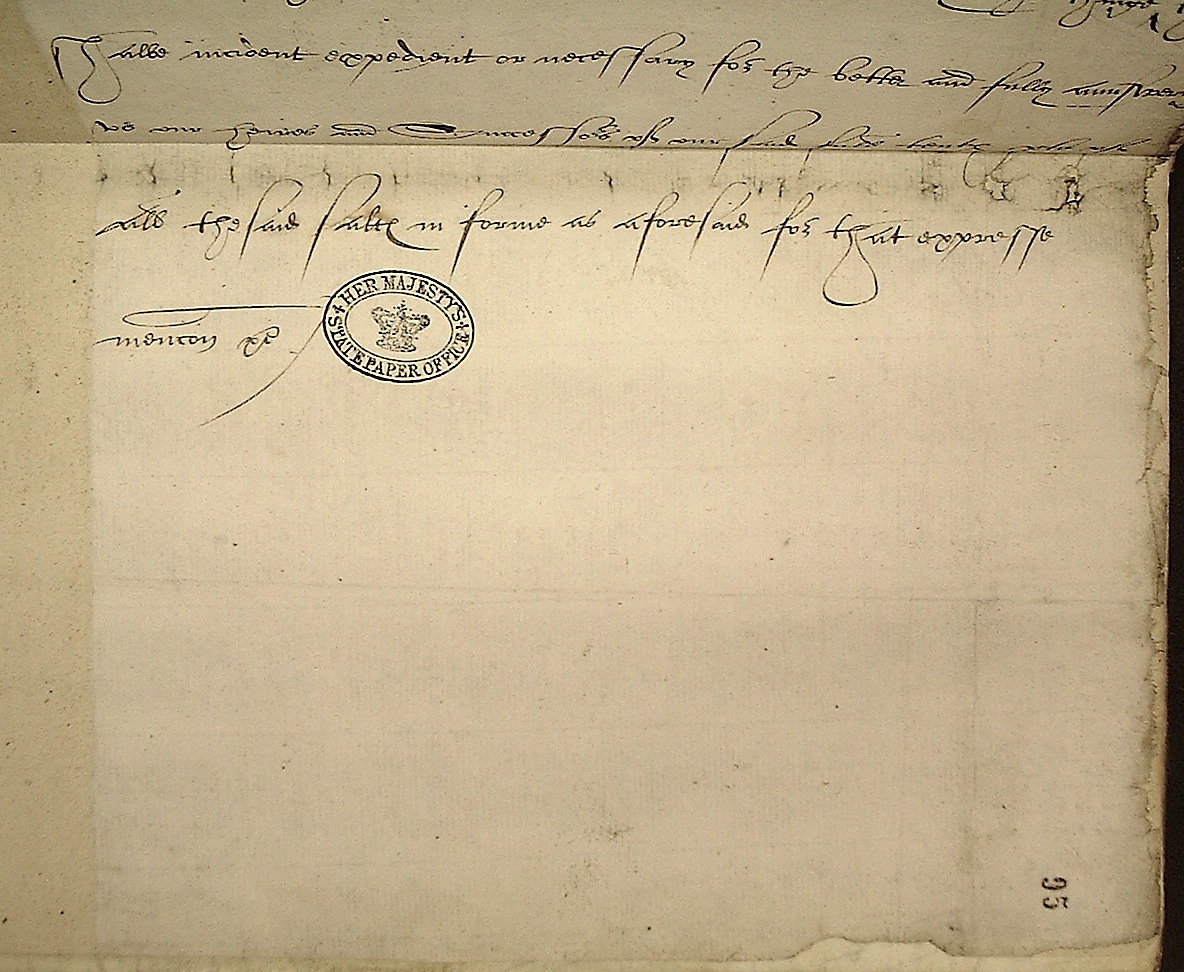 shalbe incident expedient or necessary for the better and fully
us our heires and Successors of our said
all the said salt in forme as aforesaid for that expresse
mencon &c
HER MAJESTY'S STATE PAPER OFFICE
95